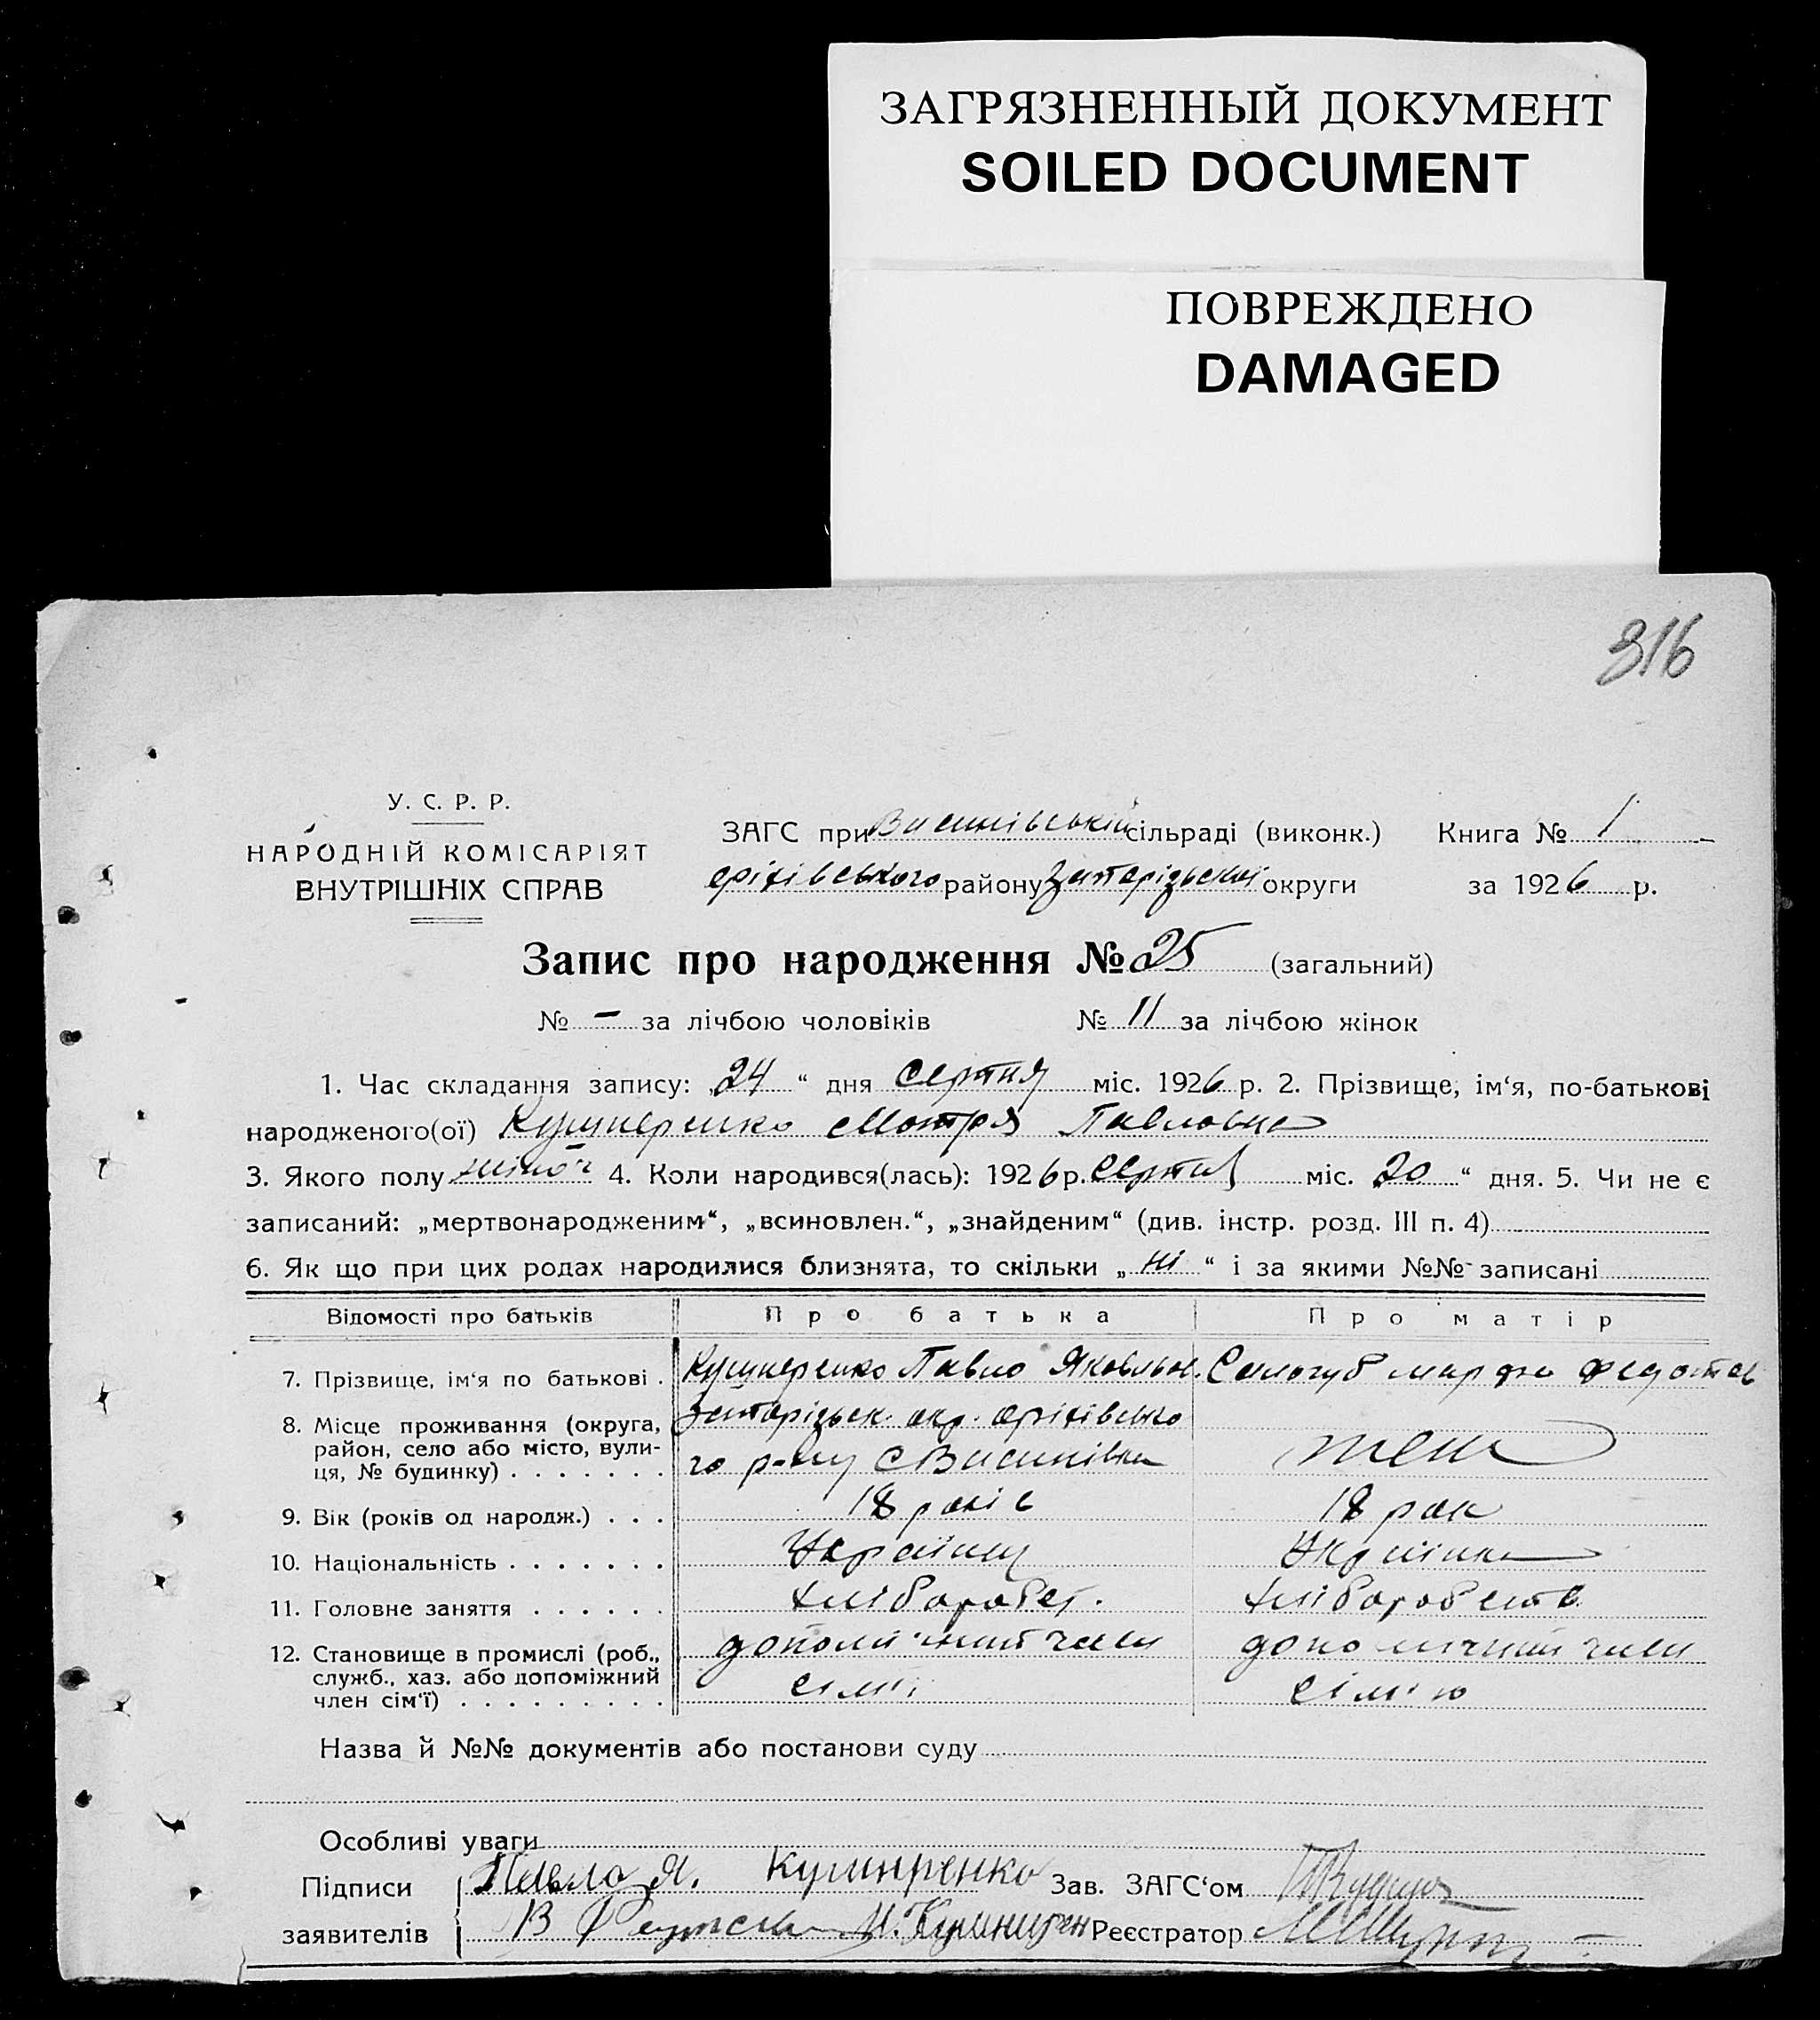 ЗАГРЯЗНЕННЫЙ ДОКУМЕНТ
SOILED DOCUMENT
ПОВРЕЖДЕНО
DAMAGED
316
У. С. Р. Р.
НАРОДНІЙ КОМІСАРІЯТ
ВНУТРІШНІХ СПРАВ
ЗАГС при сільраді (виконк.) Книга № 1
оріхівського району Запорізької округи за 1926 р.
Запис про народження № 25 (загальний)
№ - за лічбою чоловіків № 11 за лічбою жінок
1. Час складання запису: „24“ дня серпня міс. 1926 р. 2. Прізвище, ім‘я, по-батькові
народженого(ої) Кушнеренко Мотря Павловна
3. Якого полу жіноч 4. Коли народився(лась): 1926 р. серпня міс. 20 “ дня. 5. Чи не є
записаний: „мертвонародженим“, „всиновлен.“, „знайденим“ (див. інстр. розд. III п. 4)
6. Як що при цих родах народилися близнята, то скільки „ні“ і за якими №№ записані
Відомості про батьків Про батька Про матір
7. Прізвище, ім‘я по батькові . Кушнеренко Павло Яковльов. Сологуб Марфа Федотов
8. Місце проживання (округа, Запорізьк. окр. оріхівсько
район, село або місто, вули- го р-ну с теж
ця, № будинку) . . . . . . .
9. Вік (років од народж.) . . . 18 років 18 рок
10. Національність . . . . . . . Українец Українка
11. Головне заняття . . . . . . хліборобст. хліборобств
12. Становище в промислі (роб., член член
служб., хаз. або допоміжний сім'ї
член сім‘ї) . . . . . . . . .
Назва й №№ документів або постанови суду
Особливі уваги
Підписи Павло Я. Кушнренко Зав. ЗАГС‘ом
заявителів Реєстратор